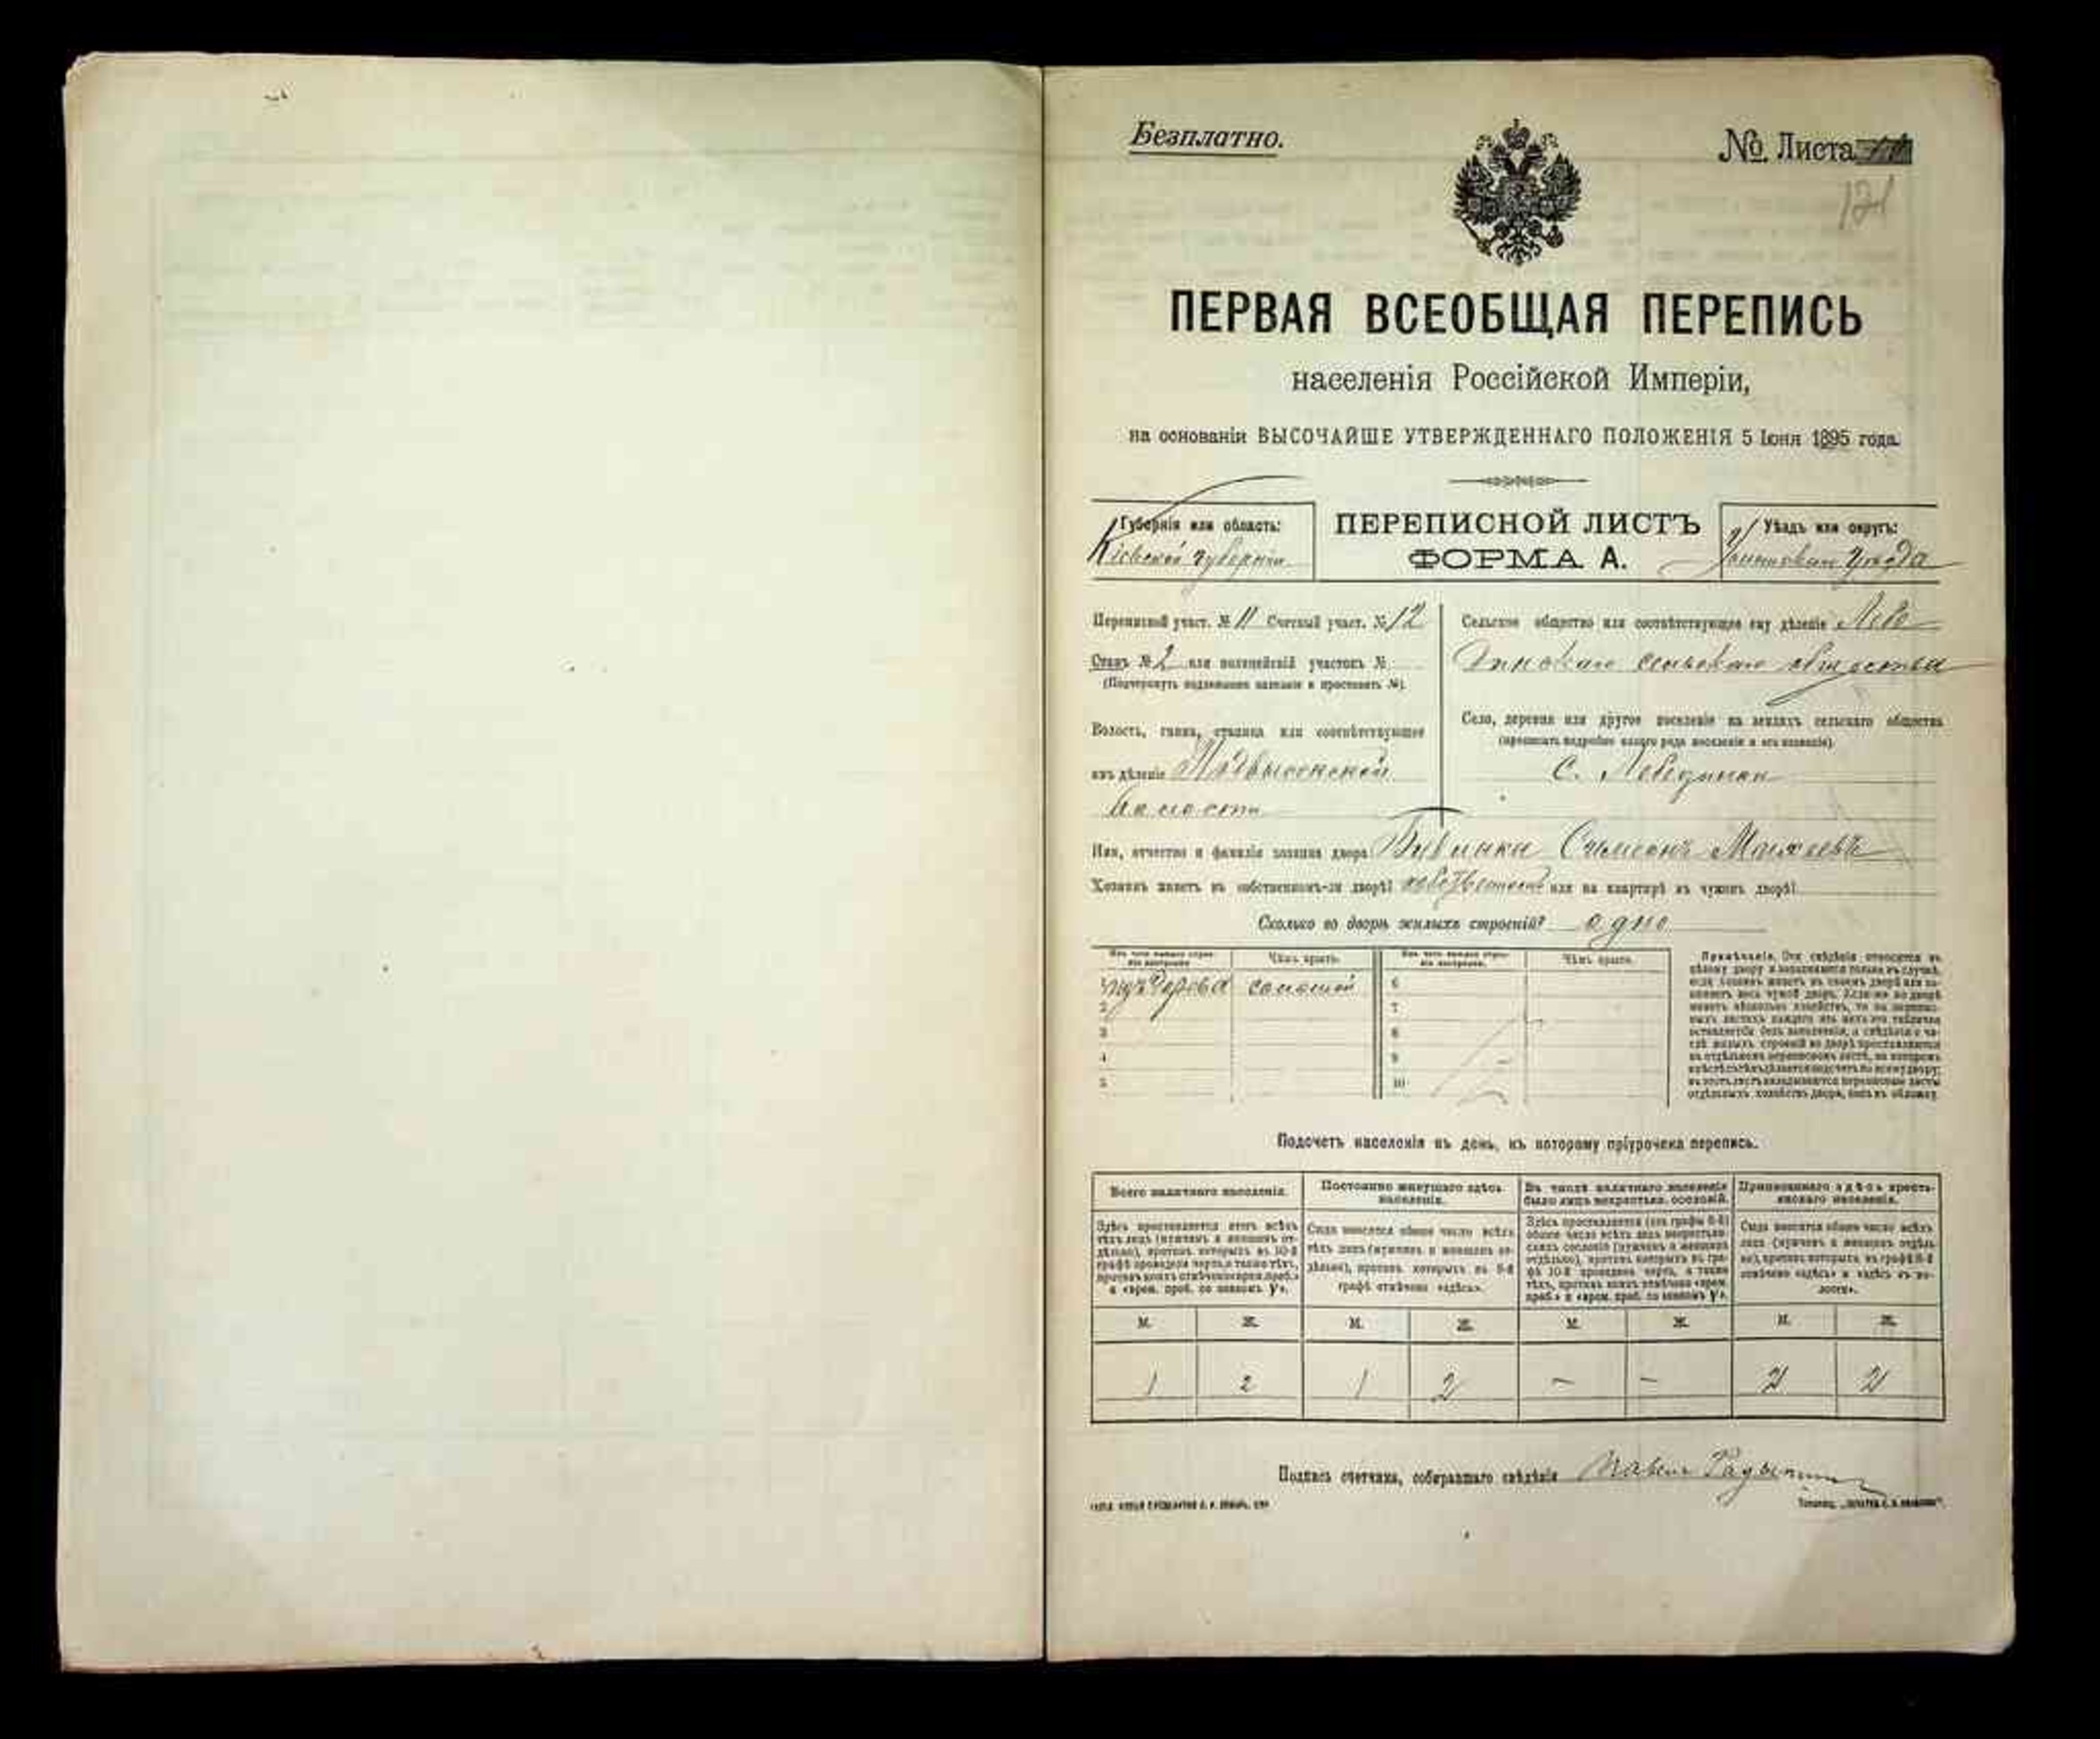 Безплатно.
№ Листа
121
ПЕРВАЯ ВСЕОБЩАЯ ПЕРЕПИСЬ
населенія Россійской Имперіи,
на основаніи ВЫСОЧАЙШЕ УТВЕРЖДЕННАГО ПОЛОЖЕНІЯ 5 Іюня 1895 года.
Губернія или область:
Кіевской губерніи
ПЕРЕПИСНОЙ ЛИСТЪ
ФОРМА А.
Уѣздъ или округъ:
Уманскаго Уѣзда
Переписной участ. № 11 Счетный участ. № 12
Станъ № 2 или полицейскій участокъ №
(Подчеркнуть надлежащее названіе и проставить №).
Волость, гмина, станица или соотвѣтствующее
имъ дѣленіе Подвысокской
волости
Сельское общество или соотвѣтствующее ему дѣленіе Лебе
динскаго сельскаго общества
Село, деревня или другое поселеніе на земляхъ сельскаго общества
(прописать подробно какого рода поселеніе и его названіе).
С. Лебединка
Имя, отчество и фамилія хозяина двора
Хозяинъ живетъ въ собственномъ-ли дворѣ? или на квартирѣ въ чужомъ дворѣ?
Сколько во дворѣ жилыхъ строеній? одно
Изъ чего каждое строеніе построено
Чѣмъ крыто.
Изъ чего каждое строеніе построено.
Чѣмъ крыто.
1 изъ дерева соломой 6
2 7
3 8
4 9
5 10
Примѣчаніе. Эти свѣдѣнія относятся къ
цѣлому двору и заполняются только въ случаѣ,
если хозяинъ живетъ въ своемъ дворѣ или за-
нимаетъ весь чужой дворъ.
Подсчетъ населенія въ день, къ которому пріурочена перепись.
Всего наличнаго населенія.
Постоянно живущаго здѣсь населенія.
Въ числѣ наличнаго населенія было лицъ некрестьян. сословій.
Приписаннаго здѣсь крестьянскаго населенія.
Здѣсь проставляется итогъ всѣхъ
тѣхъ лицъ (мужчинъ и женщинъ от-
дѣльно), противъ которыхъ въ 10-й
графѣ проведена черта, а также тѣхъ,
противъ коихъ отмѣчено «врем. преб.»
Сюда вносится общее число всѣхъ
тѣхъ лицъ (мужчинъ и женщинъ от-
дѣльно), противъ которыхъ въ 9-й
графѣ отмѣчено «здѣсь».
Сюда вносится общее число всѣхъ
лицъ (мужчинъ и женщинъ отдѣль-
но), противъ которыхъ въ графѣ 8-й
отмѣчено «здѣсь» и «здѣсь въ во-
лости».
М. Ж. М. Ж. М. Ж. М. Ж.
1 2 1 2 – – 2 2
Подпись счетчика, собиравшаго свѣдѣнія